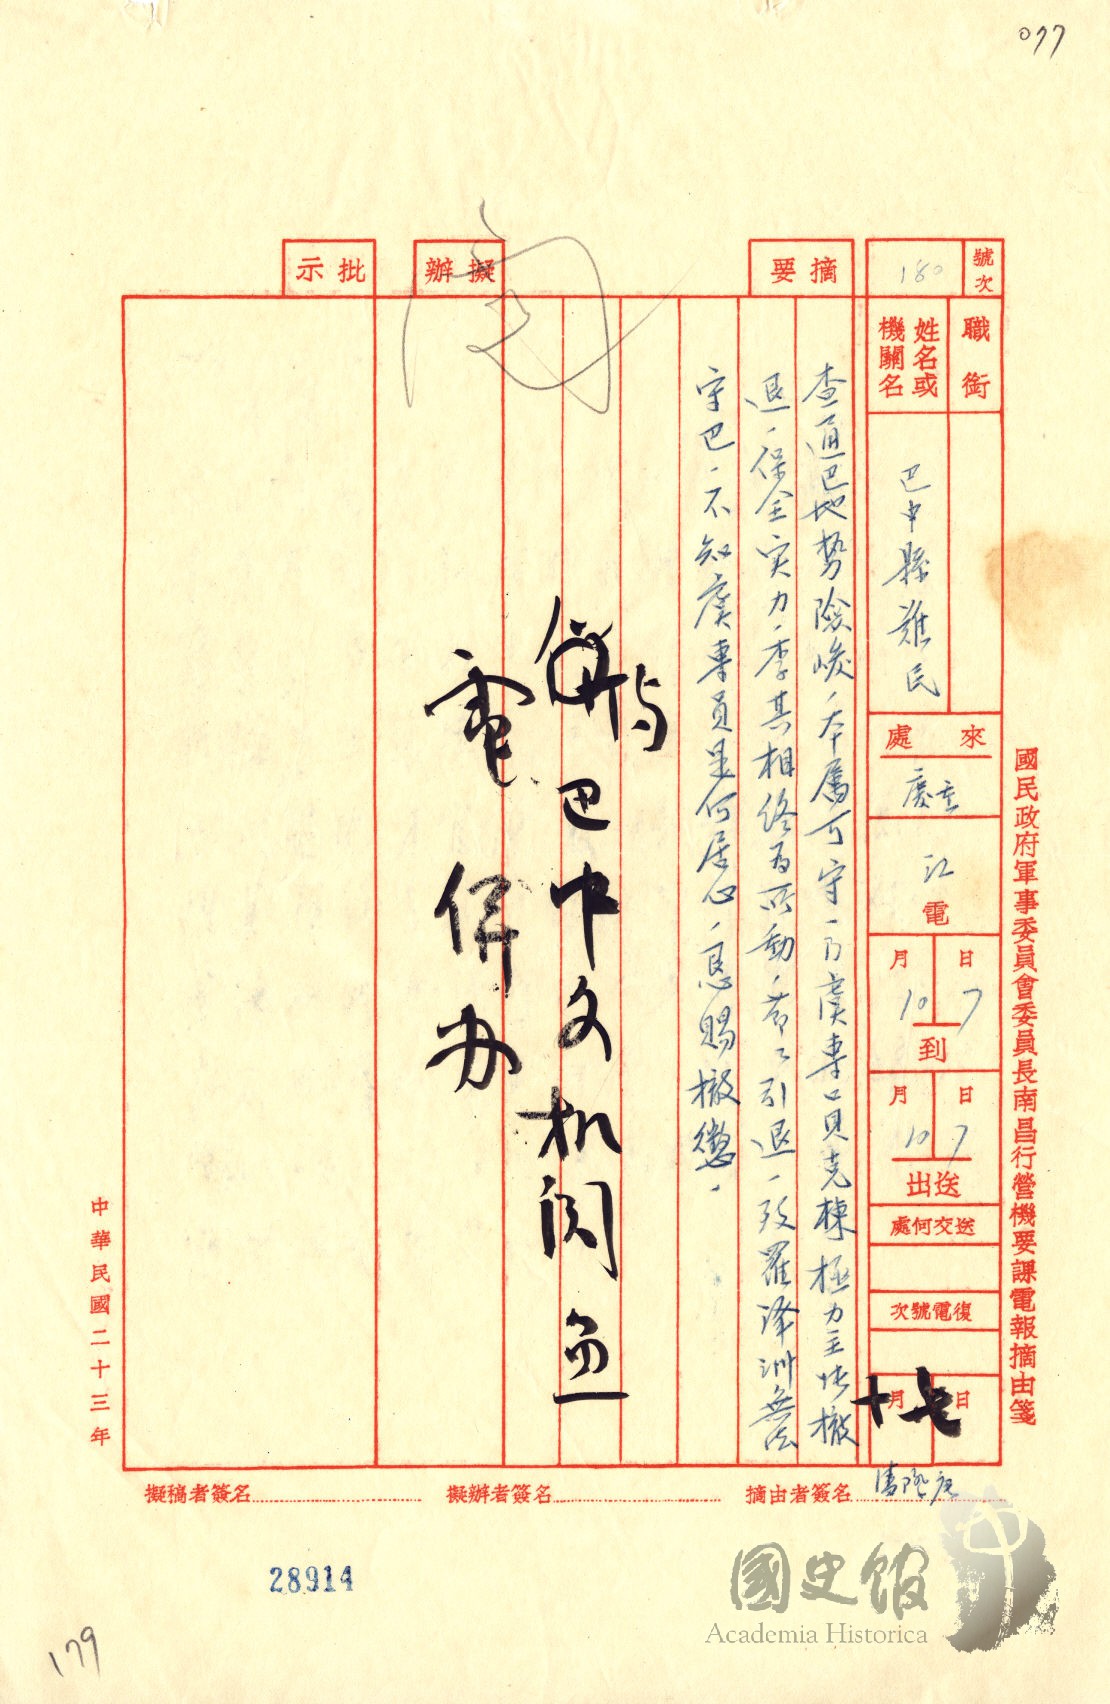 077
國民政府軍事委員會委員長南昌行營機要課電報摘由箋
號次
180
職銜
姓名或機關名
巴中縣難民
來處
重慶
江電
10月7日到
10月7日送出
送交何處
復電號次
十月七日
摘要
查通巴地勢險峻、本屬可守、乃虞專員克棟極力主張撤
退、保全实力、李其相終為所動、節々引退、致羅澤洲無法
守巴、不知虞專員是何居心、懇賜撤懲、
擬辦
與巴中各机関
電併办
批示
閱
中華民國二十三年
摘由者簽名
擬辦者簽名
擬稿者簽名
28914
179
國史館
Academia Historica